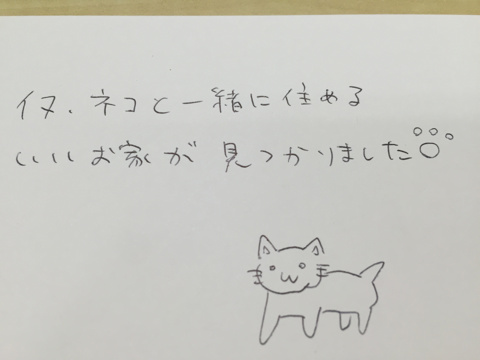 イヌ、ネコと一緒に住める
いいお家が見つかりました